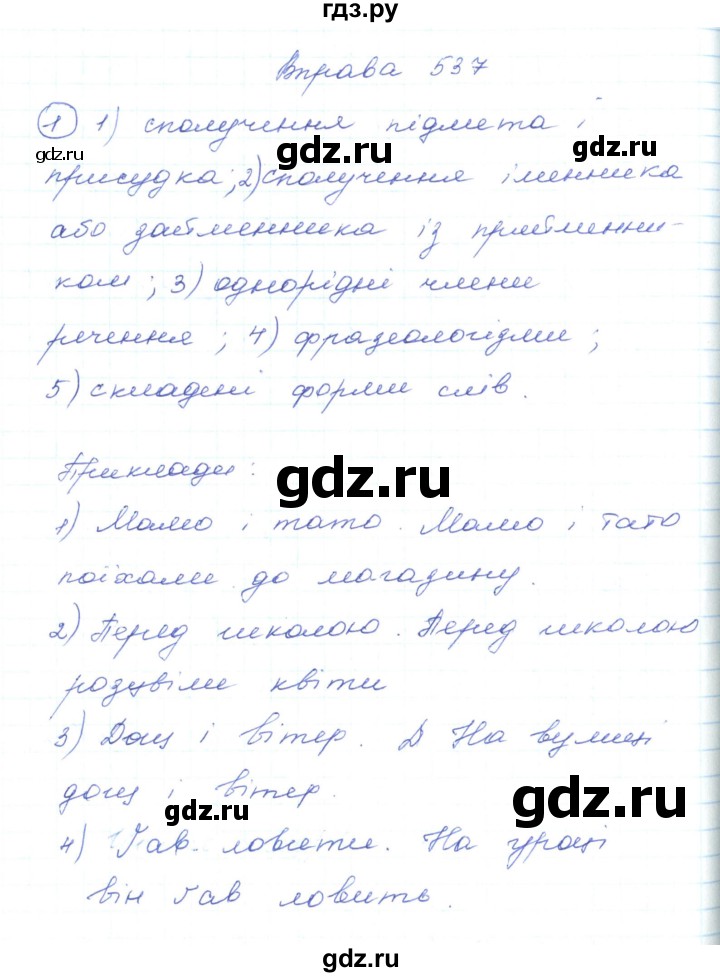 гдз.ру
Вправа 537
1 1) сполучення підмета і
присудка; 2) сполучення іменника
або займенника із прийменни-
ком; 3) однорідні члени
речення; 4) фразеологізми;
5) складені форми слів.
Приклади:
1) Мамо і тато. Мамо і тато
поїхали до магазину.
2) Перед школою. Перед школою
розцвіли квіти
3) Дощ і вітер. Д На вулиці
дощ і вітер.
4) Ґав ловити. На уроці
він ґав ловить.
gdz.ru
gdz.ru
gdz.ru
gdz.ru
gdz.ru
gdz.ru
gdz.ru
gdz.ru
gdz.ru